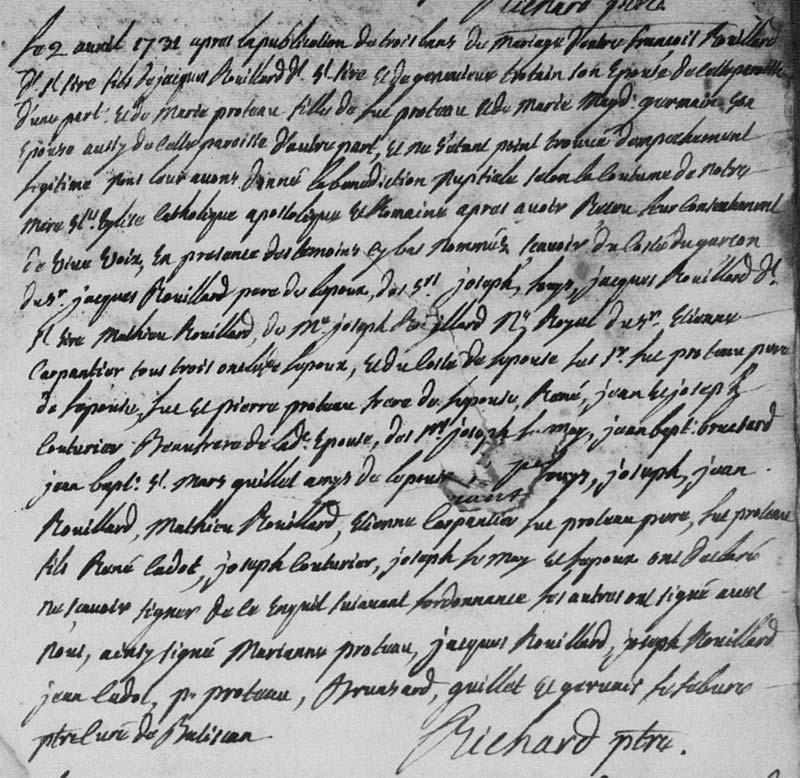 Richard ptre
Le 2 avril 1731 apres la publication de trois bans de Mariage Entre françois Rouillard
dt. St Cire fils de jacques Rouillard dt. St Cire Et de genevieve trotain son Epouse de cette paroisse
d'une part. Et de Marie proteau fille de Luc proteau Et de Marie Magd. germain son
Epouse aussy de cette paroisse d'autre part, Et ne s'etant point trouvé d'empechement
legitime nous leur avons donné la benediction Nuptiale selon la Coutume de notre
mere Ste. Eglise Catholique apostolique Et Romaine apres avoir Receu leur Consentement
de vive voix, En presence des temoins cy bas nommés, scavoir du Costé du garçon
du Sr. jacques Rouillard pere de l'epoux, des Srs joseph, Louys, jacques Rouillard dt.
St Cire Mathieu Rouillard, de Me. joseph Rouillard Nre Royal du Sr. Etienne
Carpantier tous trois oncles de l'epoux, Et du Costé de l'epouse Les Sr. Luc proteau pere
de l'epouse, Luc Et pierre proteau frere de l'epouse, René, jean Et joseph
Couturier Beaufrere de lade. Epouse, des Srs joseph Le may, jean bapt. brunsard
jean bapt. St. Mars guillet amys de l'epouse Louys, joseph, jean
Rouillard, Mathieu Rouillard, Etienne Carpantier Luc proteau pere, Luc proteau
fils René Cadot, joseph Couturier, joseph Le may Et l'epoux ont declaré
ne scavoir signer de ce Enquis suivant l'ordonnance Les autres ont signé avec
Nous, ainsy signé Marianne proteau, jacques Rouillard, joseph Rouillard
jean Cadot, pe. proteau, Brunsard, guillet Et gervais Lefebure
ptre Curé de Batiscan
Richard ptre.